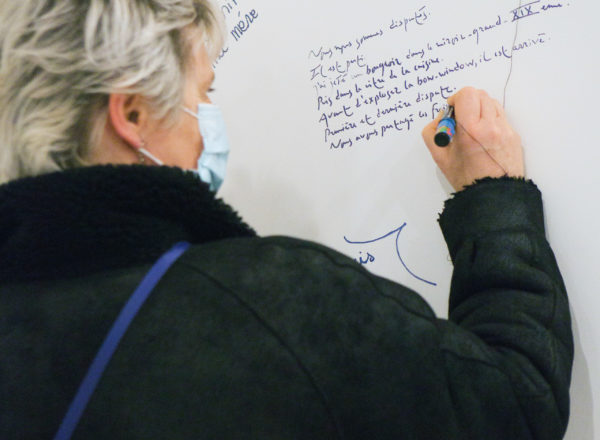 mère
Nous nous sommes disputés.
Il est parti.
J'ai jeté un bougeoir dans le miroir grand XIX eme.
Puis dans la vitre de la cuisine.
Avant d'exploser la bow-window, il est arrivé.
Première et dernière dispute.
Nous avons partagé les
is